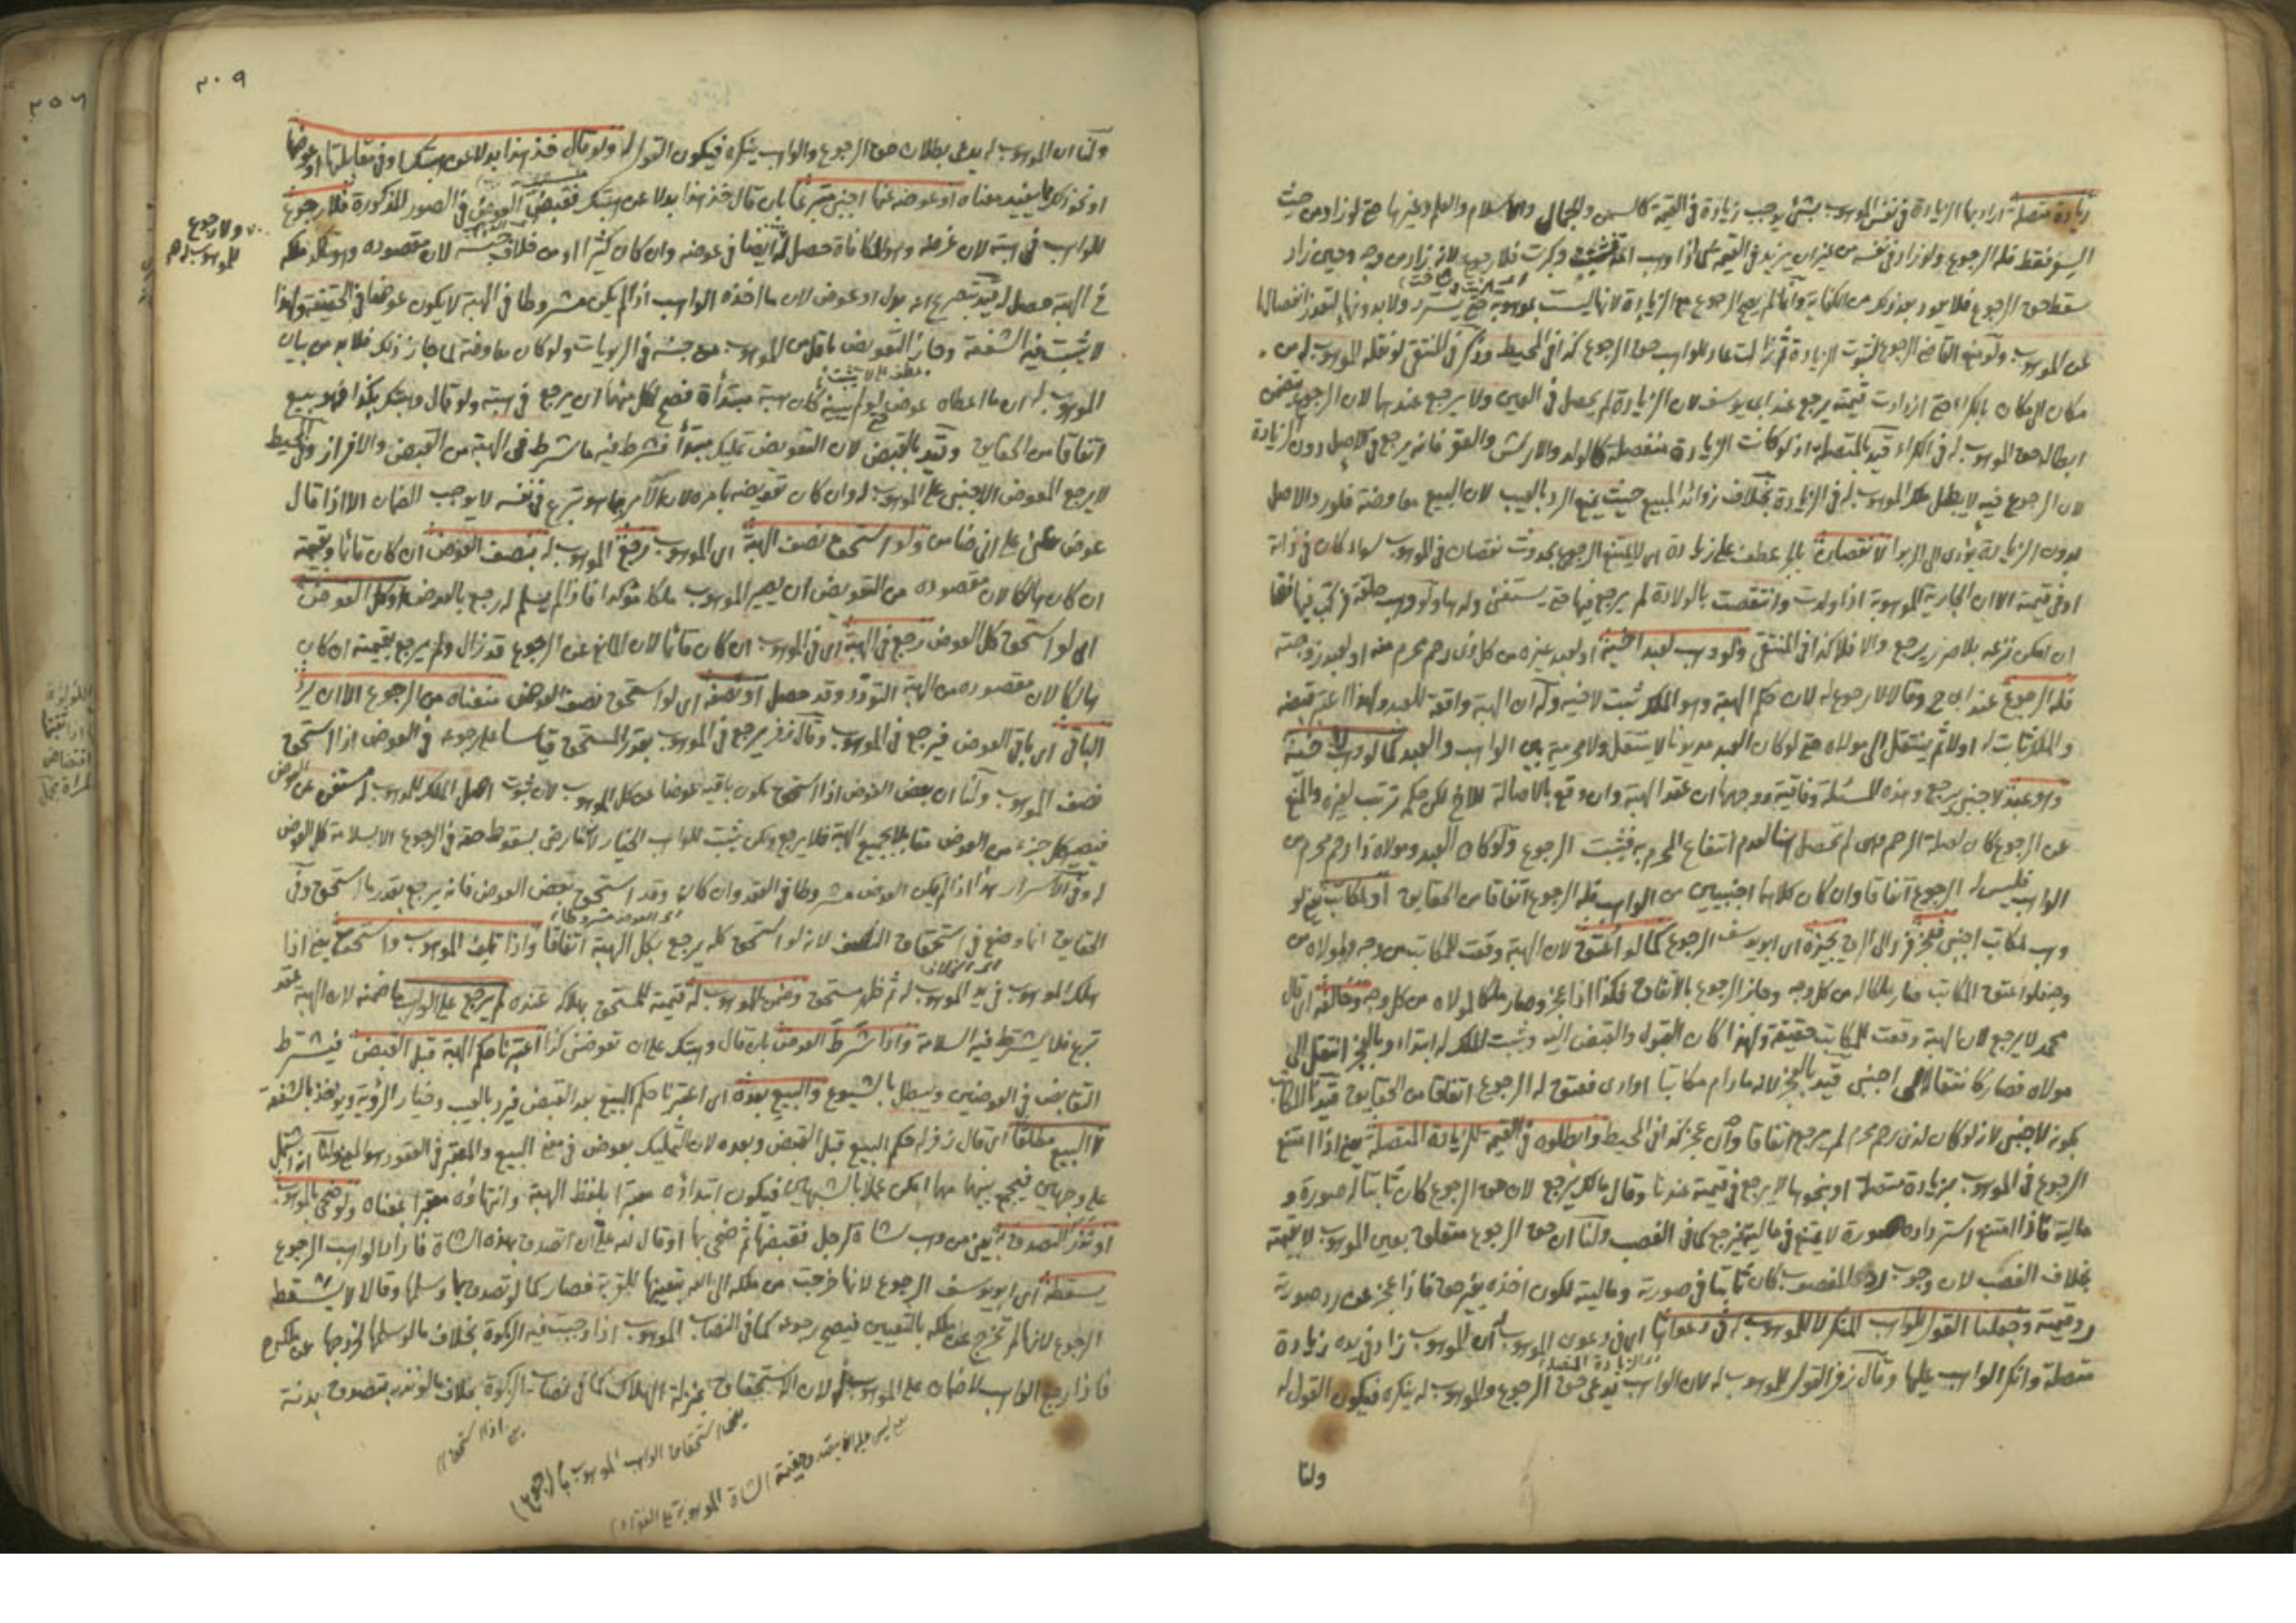 زيادة متصلة اراد بها الزيادة في نفس الموهوب بشئ يوجب زيادة في القيمة كالسمن والجمال والاسلام والعلم وغيرها حتى لو زاد من حيث
السعر فقط فله الرجوع ولو زاد في نفسه من غير ان يزيد في القيمة كما اذا وهب وكبرت فلا رجوع لانه زاد من وجه وحين زاد
سقط حق الرجوع فلا يعود بعد ذلك من الكفاية وانما لم يصح الرجوع مع الزيادة لانها ليست بموهوبة حتى يسترد ولا بدونها لتعذر انفصالها
عن الموهوب ولو منع القاضي الرجوع لثبوت الزيادة ثم زالت عاد للواهب حق الرجوع كذا في المحيط وذكر في المنتقى لو نقله الموهوب له من
مكان الى مكان بالكراء حتى ازدادت قيمته يرجع عند ابي يوسف لان الزيادة لم يحصل في العين ولا يرجع عندهما لان الرجوع يتضمن
ابطال حق الموهوب له في الكراء قيد بالمتصلة اذ لو كانت الزيادة منفصلة كالولد والارش والعقر فانه يرجع في الاصل دون الزيادة
لان الرجوع فيه لا يبطل ملك الموهوب له في الزيادة بخلاف زوائد المبيع حيث يمنع الرد بالعيب لان البيع معاوضة فلو رد الاصل
بدون الزيادة يؤدى الى الربوا لا نقصان بالجر عطف على زيادة اى لا يمنع الرجوع بحدوث نقصان في الموهوب سواء كان في ذاته
او في قيمته الا ان الجارية الموهوبة اذا ولدت وانتقصت بالولادة لم يرجع فيها حتى يستغنى ولدها ولو وهب حلقة فركب فيها فصا
ان امكن نزعه بلا ضرر يرجع والا فلا كذا في المنتقى ولو وهب لعبد اخيه او لعبد غيره من كل ذى رحم محرم منه او لعبد زوجته
فله الرجوع عند ابي ح وقالا لا رجوع له لان حكم الهبة وهو الملك ثبت لاخيه وله ان الهبة واقعة للعبد ولهذا اعتبر قبضه
والملك ثابت له اولا ثم ينتقل الى مولاه حتى لو كان العبد مديونا لا ينتقل ولا محرمية بين الواهب والعبد كما لو وهب لاخيه
وهو عبد لاجنبي يرجع وهذه المسئلة وفاقية ووجهها ان عقد الهبة وان وقع بالاصالة للاخ لكن حكمه ترتب لغيره والمنع
عن الرجوع كان لصلة الرحم وهى لم تحصل هنا لعدم انتفاع المحرم به فيثبت الرجوع ولو كان العبد ومولاه ذا رحم محرم من
الواهب فليس له الرجوع اتفاقا وان كان كلاهما اجنبيين من الواهب فله الرجوع اتفاقا من الحقايق او لمكاتب يعني لو
وهب لمكاتب اجنبي فعجز فرد الى الرق يجيزه اى ابو يوسف الرجوع كما لو اعتق لان الهبة وقعت للمكاتب من وجه ولمولاه من
وجه فلو اعتق المكاتب صار ملكا له من كل وجه وجاز الرجوع بالاتفاق فكذا اذا عجز وصار ملكا لمولاه من كل وجه وخالفه اى قال
محمد لا يرجع لان الهبة وقعت للمكاتب حقيقة ولهذا كان القبول والقبض اليه وثبت الملك له ابتداء وبالعجز انتقل الى
مولاه فصار كانتقاله الى اجنبي قيد بالعجز لانه ما دام مكاتبا او ادى فعتق له الرجوع اتفاقا من الحقايق قيد المكاتب
بكونه لاجنبي لانه لو كان لذى رحم محرم لم يرجع اتفاقا وان عجز كذا في المحيط وابطلوه في القيمة للزيادة المتصلة يعني اذا امتنع
الرجوع في الموهوب بزيادة متصلة او بنحوها لا يرجع في قيمته عندنا وقال مالك يرجع لان حق الرجوع كان ثابتا له صورة و
مالية فاذا امتنع استرداده صورة لا يمتنع في ماليته فيرجع كما في الغصب ولنا ان حق الرجوع متعلق بعين الموهوب لا بقيمته
بخلاف الغصب لان وجوب رد المغصوب كان ثابتا في صورته وماليته لكون اخذه بغير حق فاذا عجز عن رد صورته
رد قيمته وجعلنا القول للواهب المنكر لا للموهوب له في دعواها اى في دعوى الموهوب له ان الموهوب زاد في يده زيادة
متصلة وانكر الواهب عليها وقال زفر القول للموهوب له لان الواهب يدعى حق الرجوع والموهوب له ينكره فيكون القول له
ولنا
٢٠٩
ولنا ان الموهوب له يدعى بطلان حق الرجوع والواهب ينكره فيكون القول له ولو قال خذ هذا بدلا عن هبتك او في مقابلتها او عوضها
او نحو ذلك مما يفيد معناه او عوضه عنها اجنبي متبرعا بان قال خذ هذا بدلا عن هبتك فقبض العوض في الصور المذكورة فلا رجوع
للواهب في هبته لان غرضه وهو المكافاة حصل له ايضا في عوضه وان كان كثيرا او من خلاف جنسه لان مقصوده وهو تأكد ملكه
في الهبة حصل له قيد بتصريح انه بدل او عوض لان ما اخذه الواهب اذا لم يكن مشروطا في الهبة لا يكون عوضا في الحقيقة ولهذا
لا يثبت فيه الشفعة وجاز التعويض باقل من الموهوب من جنسه في الربويات ولو كان معاوضة لما جاز ذلك فلا بد من بيان
الموهوب له ان ما اعطاه عوض لو لم يبينه كان هبة مبتدأة فصح لكل منهما ان يرجع في هبته ولو قال وهبتك بكذا فهو بيع
اتفاقا من الحقايق وقيد بالقبض لان التعويض تمليك مبتدأ فشرط فيه ما شرط في الهبة من القبض والافراز وفي المحيط
لا يرجع المعوض الاجنبي على الموهوب له وان كان تعويضه بامره لان الامر بما هو تبرع في نفسه لا يوجب الضمان الا اذا قال
عوض عني على اني ضامن ولو استحق نصف الهبة اى الموهوب رجع الموهوب له بنصف العوض ان كان قائما وبقيمته
ان كان هالكا لان مقصوده من التعويض ان يصير الموهوب ملكا مؤكدا فاذا لم يسلم له رجع بالعوض او كل العوض
اى لو استحق كل العوض رجع في الهبة اى في الموهوب ان كان قائما لان المانع عن الرجوع قد زال ولم يرجع بقيمته ان كان
هالكا لان مقصوده من الهبة التودد وقد حصل او نصفه اى لو استحق نصف العوض منعناه من الرجوع الا ان يرد
الباقي اى باقي العوض فيرجع في الموهوب وقال زفر يرجع في الموهوب بقدر المستحق قياسا على رجوعه في العوض اذا استحق
نصف الموهوب ولنا ان بعض العوض اذا استحق يكون باقيه عوضا عن كل الموهوب لان ثبوت اصل الملك للموهوب له مستغن عن العوض
فيصير كل جزء من العوض مقابلا بجميع الهبة فلا يرجع ولكن يثبت للواهب الخيار لانه ما رضى بسقوط حقه في الرجوع الا بسلامة كل العوض
له وفي الاسرار هذا اذا لم يكن العوض مشروطا في العقد وان كان وقد استحق بعض العوض فانه يرجع بقدر ما استحق وفي
الحقايق انما وضع في استحقاق النصف لانه لو استحق كله يرجع بكل الهبة اتفاقا واذا تلف الموهوب واستحق يعني اذا
هلك الموهوب في يد الموهوب له ثم ظهر مستحق وضمن الموهوب له قيمته للمستحق بهلاكه عنده لم يرجع على الواهب بما ضمنه لان الهبة عقد
تبرع فلا يشترط فيه السلامة واذا شرط العوض بان قال وهبتك على ان تعوضني كذا اعتبرنا حكم الهبة قبل القبض فيشترط
التقابض في العوضين ويبطل بالشيوع والبيع بعده اى اعتبرنا حكم البيع بعد القبض فيرد بالعيب وخيار الرؤية ويؤخذ بالشفعة
لا البيع مطلقا اى قال زفر له حكم البيع قبل القبض وبعده لان التمليك بعوض في معنى البيع والمعتبر في العقود هو المعنى ولنا انه اشتمل
على وجهين فيجمع بينهما مهما امكن عملا بالشبهين فيكون ابتداؤه معتبرا بلفظ الهبة وانتهاؤه معتبرا بمعناه ولو ضحى بالموهوب
او نذر التصدق به يعني من وهب شاة لرجل فقبضها ثم ضحى بها او قال لله على ان اتصدق بهذه الشاة فاراد الواهب الرجوع
يسقطه اى ابو يوسف الرجوع لانها خرجت من ملكه الى الله بتعيينها للقربة فصار كما لو تصدق بها وسلمها وقالا لا يسقط
الرجوع لانها لم تخرج عن ملكه بالتعيين فيصح رجوعه كما في النصاب الموهوب اذا وجبت فيه الزكوة بخلاف ما لو سلمها لخروجها عن ملكه ح
فاذا رجع الواهب لا ضمان على الموهوب له لان الاستحقاق بمنزلة الهلاك كما في نصاب الزكوة بخلاف ما لو نذر بتصدق بدنة
ولا رجوع
للموهوب له